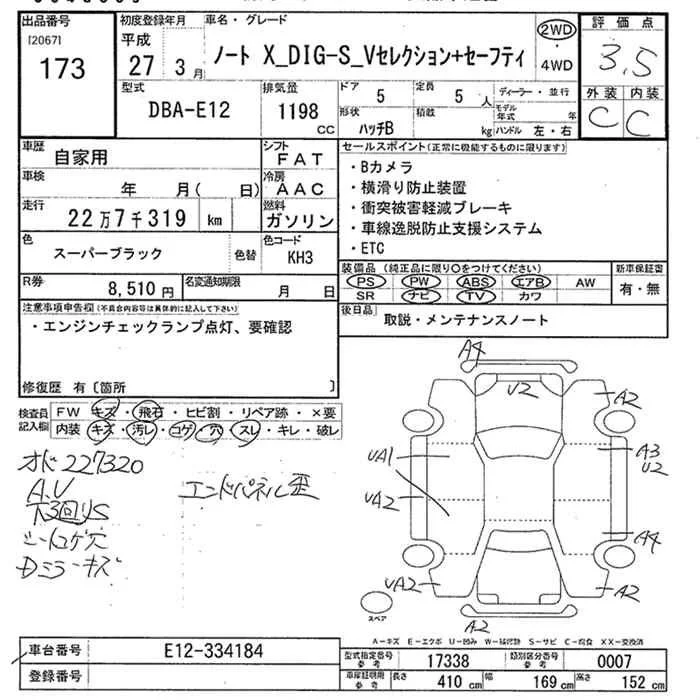 出品番号 初度登録年月 車名・グレード 評価点
[2067] 平成
173 27 3月 ノート X_DIG-S_Vセレクション+セーフティ 2WD・4WD 3.5
型式 排気量 ドア 定員 ディーラー・並行 外装 内装
DBA-E12 1198cc 5 5人 モデル年式 年 C C
形状 積載
ハッチB kg ハンドル 左・右
車歴 シフト セールスポイント(正常に機能するものに限ります)
自家用 FAT ・Bカメラ
車検 冷房 ・横滑り防止装置
年 月(日) AAC ・衝突被害軽減ブレーキ
走行 燃料 ・車線逸脱防止支援システム
22万7千319 km ガソリン ・ETC
色 色替 色コード
スーパーブラック KH3
装備品(純正品に限り○をつけてください) 新車保証書
R券 名変通知期限 PS PW ABS エアB AW 有・無
8,510円 月 日 SR ナビ TV カワ
注意事項申告欄(不具合内容等は具体的に記入して下さい) 後日品
・エンジンチェックランプ点灯、要確認 取説・メンテナンスノート
修復歴 有〔箇所 〕
検査員記入欄 FW キズ・飛石・ヒビ割・リペア跡・×要
内装 キズ・汚レ・コゲ・穴・スレ・キレ・破レ
オド227320
A,V
下3回リS
シートコゲ穴
Dミラーキズ
エンドパネル歪
A4
U2
A2
UA1
A3
U2
UA2
A4
UA2
A2
A2
スペア
A-キズ E-エクボ U-凹み W-補修跡 S-サビ C-腐食 XX-交換済
車台番号 E12-334184
登録番号
型式指定番号 参考 17338 類別区分番号 参考 0007
車庫証明用 参考 長さ 410cm 幅 169cm 高さ 152cm